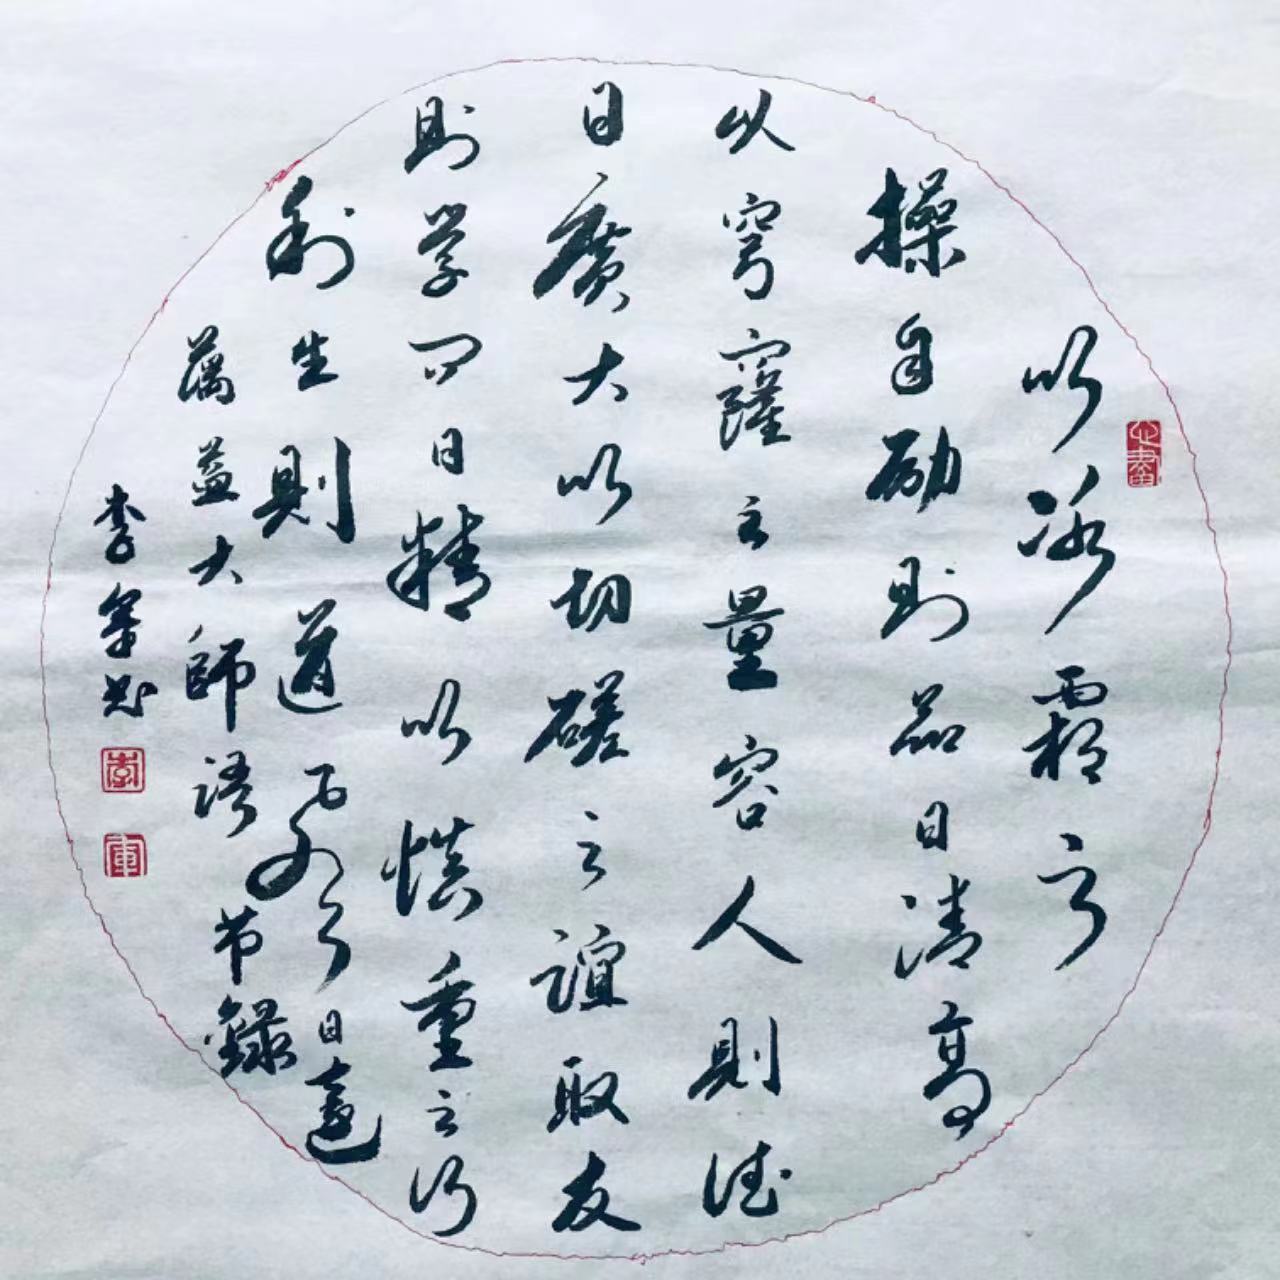 以冰霜之
操自励則品日清高
以穹窿之量容人則德
日廣大以切磋之誼取友
則学问日精以慎重之行
利生則道風日遠
蕅益大師語节錄
李軍书
李
軍